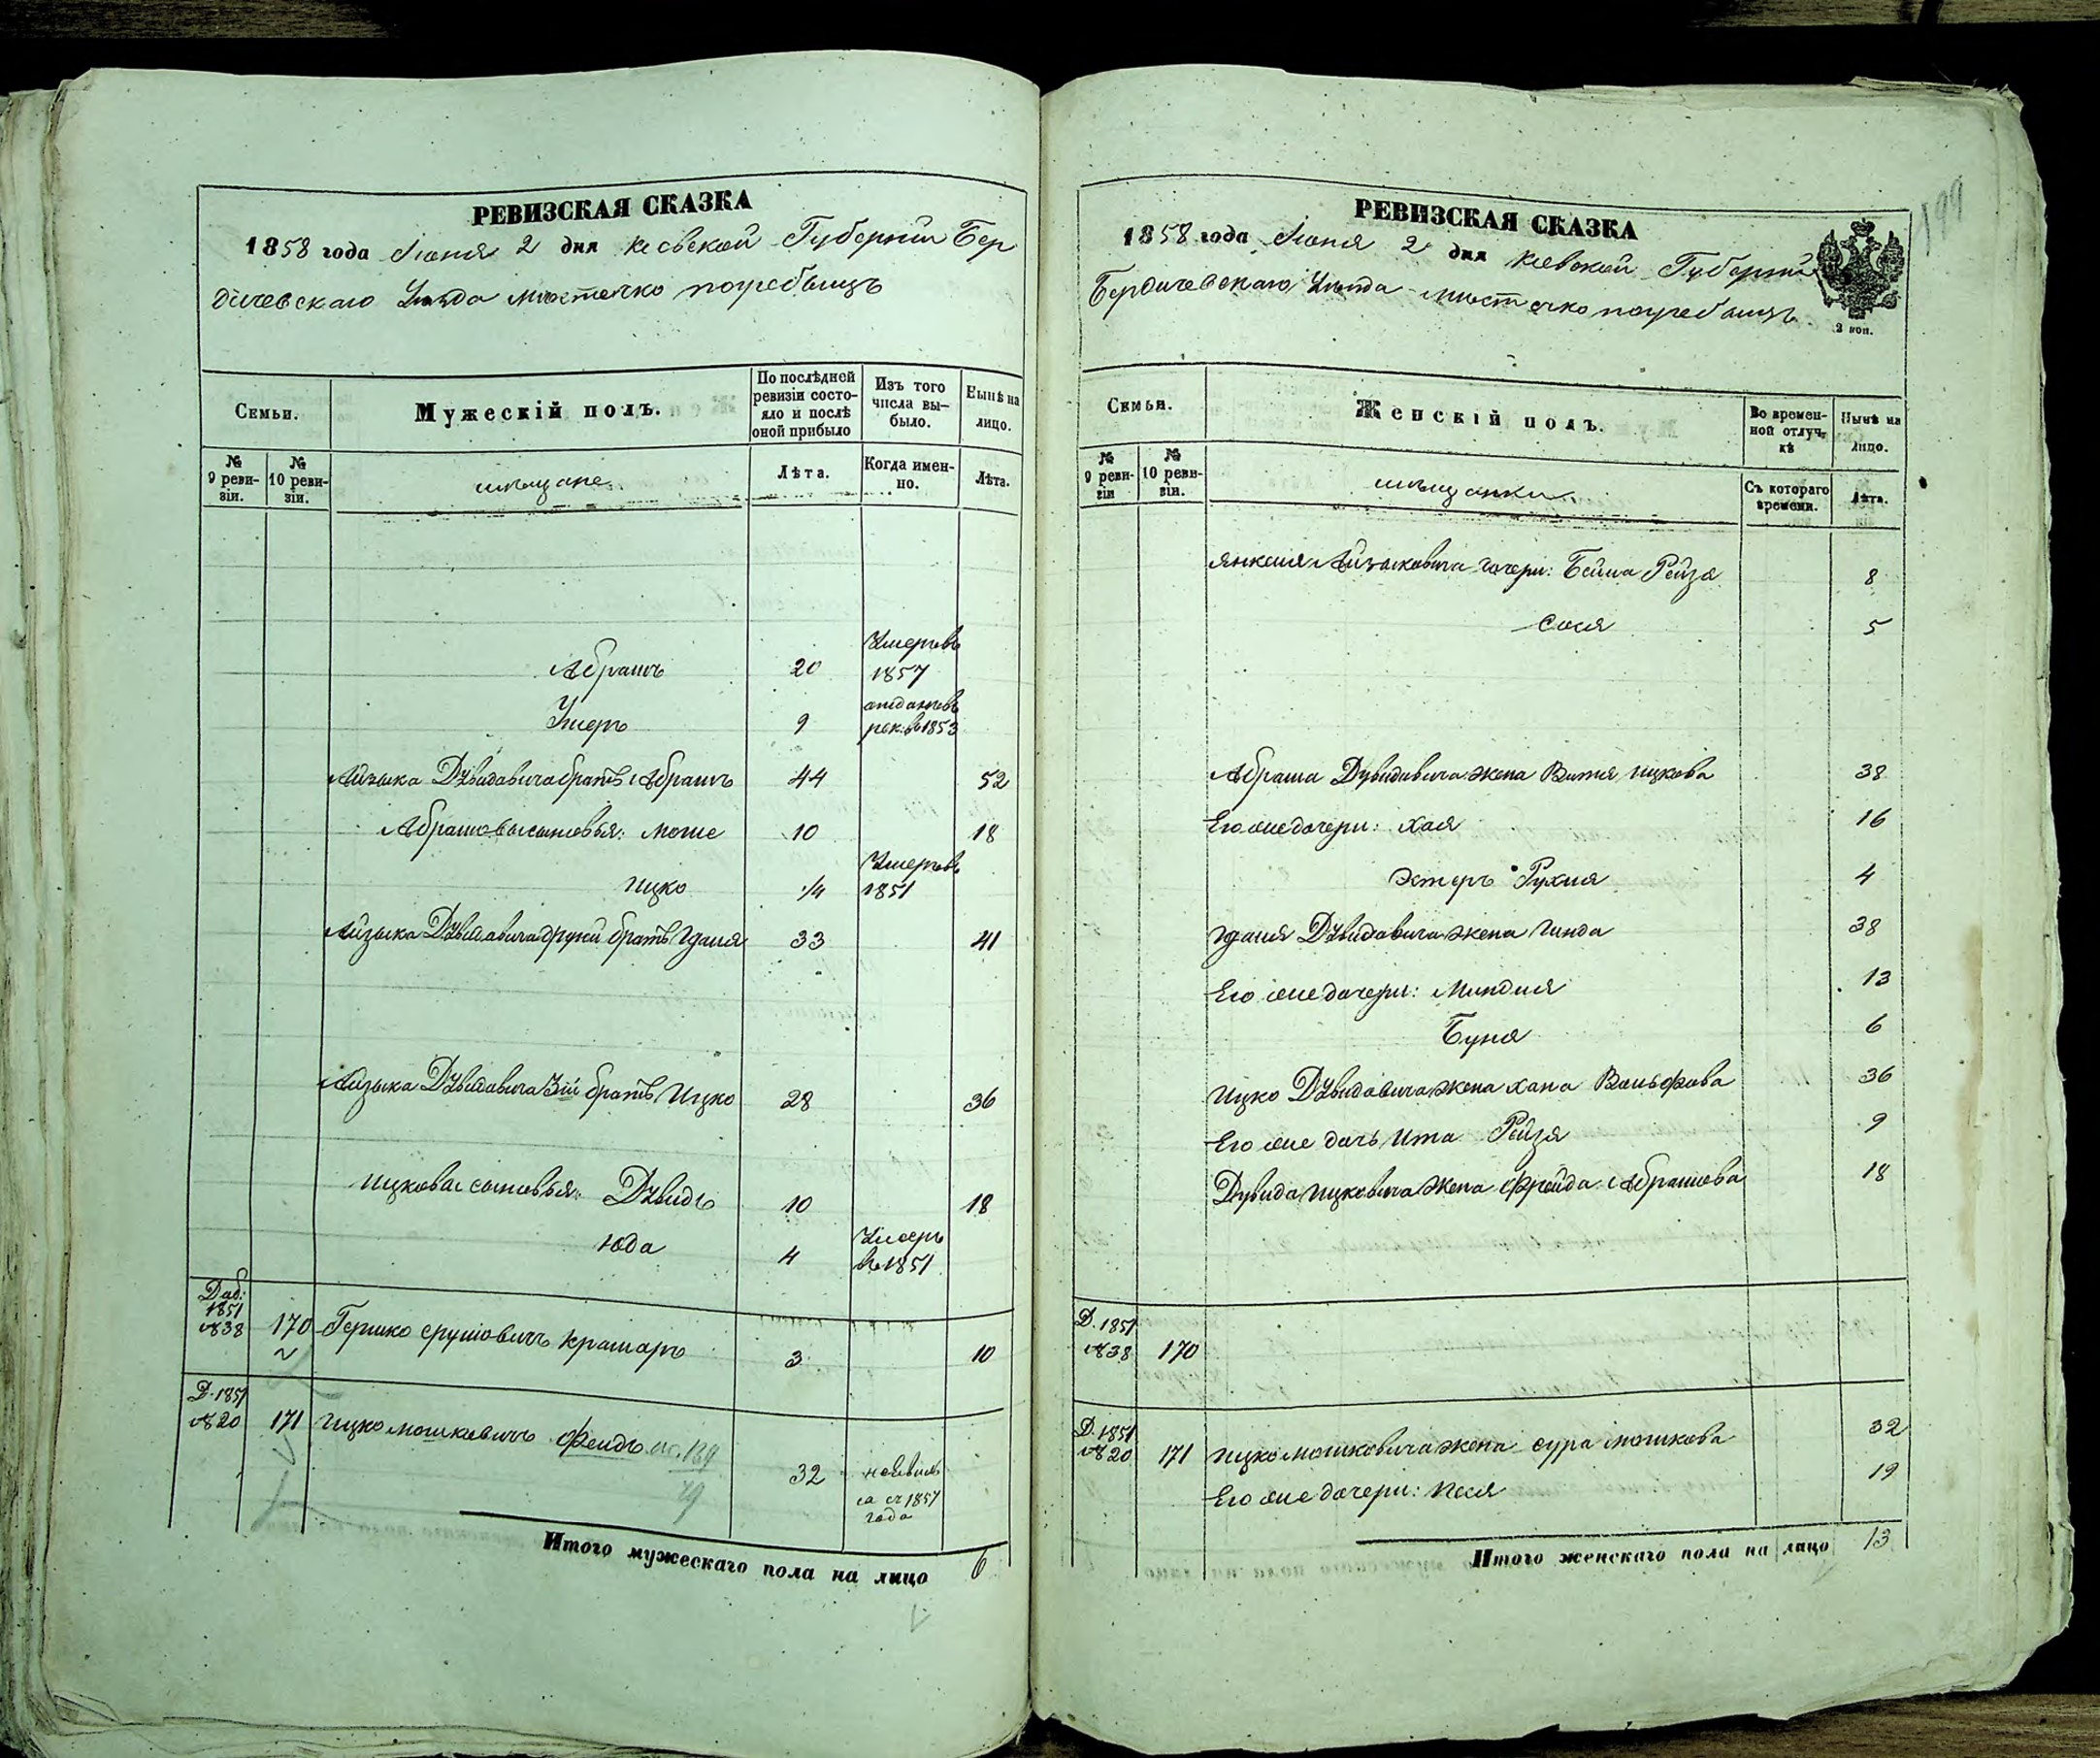 РЕВИЗСКАЯ СКАЗКА
1858 года Июня 2 дня Киевской Губернии Бер
дичевскаго Уезда местечко погребыщь
Семьи.
Мужескій полъ.
По послѣдней ревизіи состояло и послѣ оной прибыло
Изъ того числа выбыло.
Нынѣ на лицо.
№ 9 ревизіи.
№ 10 ревизіи.
мещане
Лѣта.
Когда именно.
Лѣта.
Абрамъ 20 Умеръ въ 1857
Ушеръ 9 отданъ въ рек. въ 1853
Айзыка Дувидовича братъ Абрамъ 44 52
Абрамовы сыновья: Моше 10 18
Ицко 1/4 Умеръ въ 1851
Айзыка Дувидовича другий братъ Гдаля 33 41
Айзыка Дувидовича 3ій братъ Ицко 28 36
Ицковы сыновья: Дувидъ 10 18
Юда 4 Умеръ въ 1851
Доб: 1851 №38 170 Гершко Срулиовичъ Крамаръ 3 10
Д. 1851 №20 171 Ицко Мошковичъ 32 с 1857 года
Итого мужескаго пола на лицо 6
199
РЕВИЗСКАЯ СКАЗКА
1858 года Июня 2 дня Киевской Губернии
Бердичевскаго Уезда местечко погребыщь
2 коп.
Семьи.
Женскій полъ.
Во временной отлучкѣ
Нынѣ на лицо.
№ 9 ревизіи
№ 10 ревизіи.
мещанки
Съ котораго времени.
Лѣта.
Янкеля Айзыковича дочери: Бейла Рейзя 8
Сося 5
Абрама Дувидовича жена Ицкова 38
Его же дочери: Хая 16
Эстеръ Рухля 4
Гдаля Дувидовича жена Гинда 38
Его же дочери: Миндля 13
Буня 6
Ицко Дувидовича жена Хана Вольфова 36
Его же дочь Ита Рейзя 9
Дувида Ицковича жена Фрейда Абрамова 18
Д. 1851 №38 170
Д. 1851 №20 171 Ицко Мошковича жена Сура Мошкова 32
Его же дочери: Песя 19
Итого женскаго пола на лицо 13